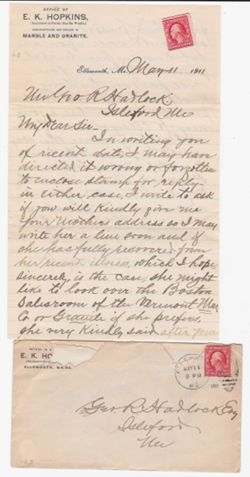 OFFICE OF
E. K. HOPKINS,
MARBLE AND GRANITE.
Ellsworth, Me. May 11 1911
Mr Geo R Hadlock
Islesford Me
My dear Sir
In writing you
of recent date, I may have
directed it wrong or forgotten
to enclose stamp for reply
in either case, I write to ask
if you will kindly give me
your Mothers address so I may
write her a line soon and if
she has fully recovered from
her recent illness, which I hope
sincerely is the case she might
like to look over the Boston
Salesroom of the Vermont Mar.
Co or Granite if she prefers
she very kindly said after your
E. K. HO
ELLSWORTH, MAINE.
Geo R Hadlock Esq
Islesford
Me